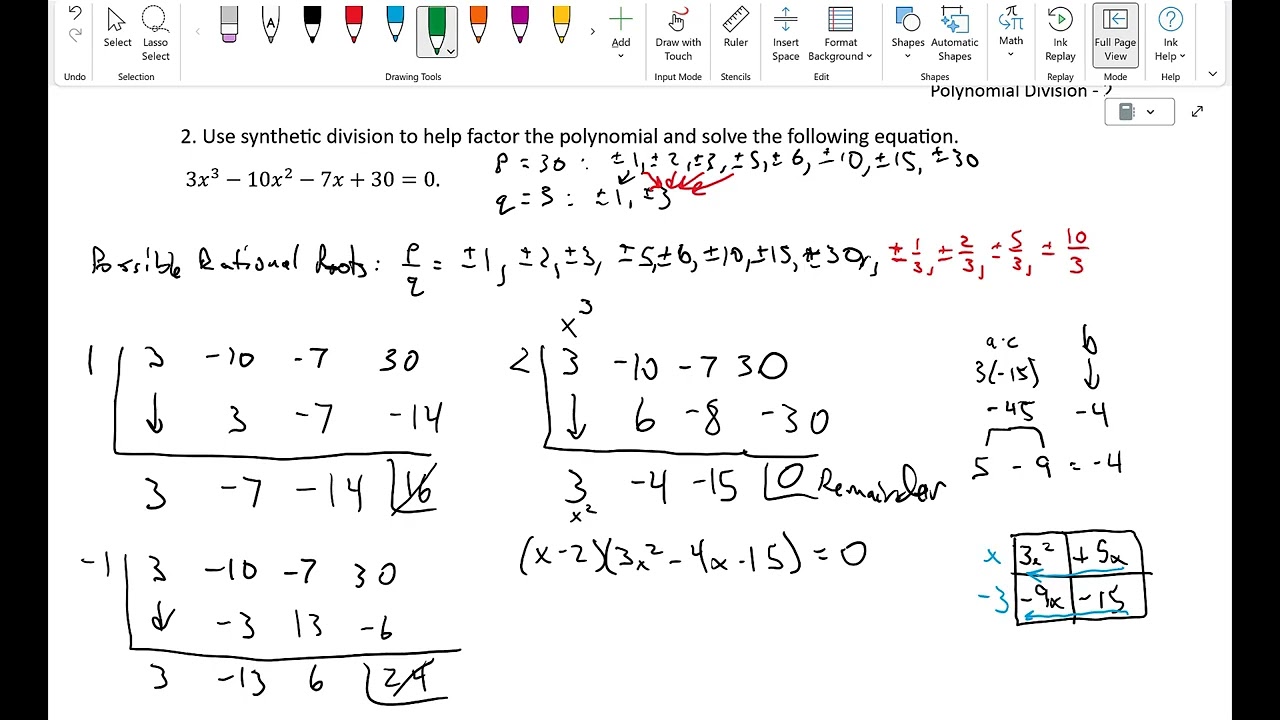 Undo
Select
Lasso Select
Selection
Drawing Tools
Add
Draw with Touch
Input Mode
Ruler
Stencils
Insert Space
Format Background
Edit
Shapes
Automatic Shapes
Shapes
Math
Ink Replay
Replay
Full Page View
Mode
Ink Help
Help
Polynomial Division - 2
2. Use synthetic division to help factor the polynomial and solve the following equation.
3x³ − 10x² − 7x + 30 = 0.
p = 30 : ±1, ±2, ±3, ±5, ±6, ±10, ±15, ±30
q = 3 : ±1, ±3
Possible Rational Roots: p/q = ±1, ±2, ±3, ±5, ±6, ±10, ±15, ±30, ±1/3, ±2/3, ±5/3, ±10/3
1 | 3 -10 -7 30
↓ 3 -7 -14
3 -7 -14 16
-1 | 3 -10 -7 30
↓ -3 13 -6
3 -13 6 24
x³
2 | 3 -10 -7 30
↓ 6 -8 -30
3 -4 -15 0 Remainder
x²
(x-2)(3x² - 4x - 15) = 0
a·c b
3(-15) ↓
-45 -4
5 - 9 = -4
x 3x² +5x
-3 -9x -15